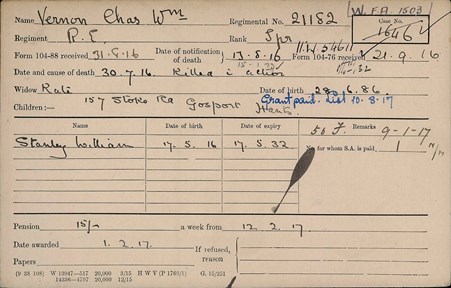 W.F.A. 1503
Name Vernon Chas Wm Regimental No. 21182
Case No. 1646
Regiment R.E. Rank Spr
Form 104-88 received 31.8.16 Date of notification of death 13.8.16 Form 104-76 received 21.9.16
Date and cause of death 30.7.16. Killed i action
Widow Kate Date of birth 28.6.86
157 Stoke Rd Gosport Hants Grant paid. List 10-8-17
Children:—
Name Date of birth Date of expiry Remarks 9-1-17
Stanley William 17.5.16 17.5.32 No for whom S.A. is paid 1
Pension 15/- a week from 12.2.17.
Date awarded 1.2.17. If refused, reason
Papers
(9 38 108) W 13947—517 20,000 3/15 H W V (P 1760/1) G. 15/251
14336—4797 20,000 12/15